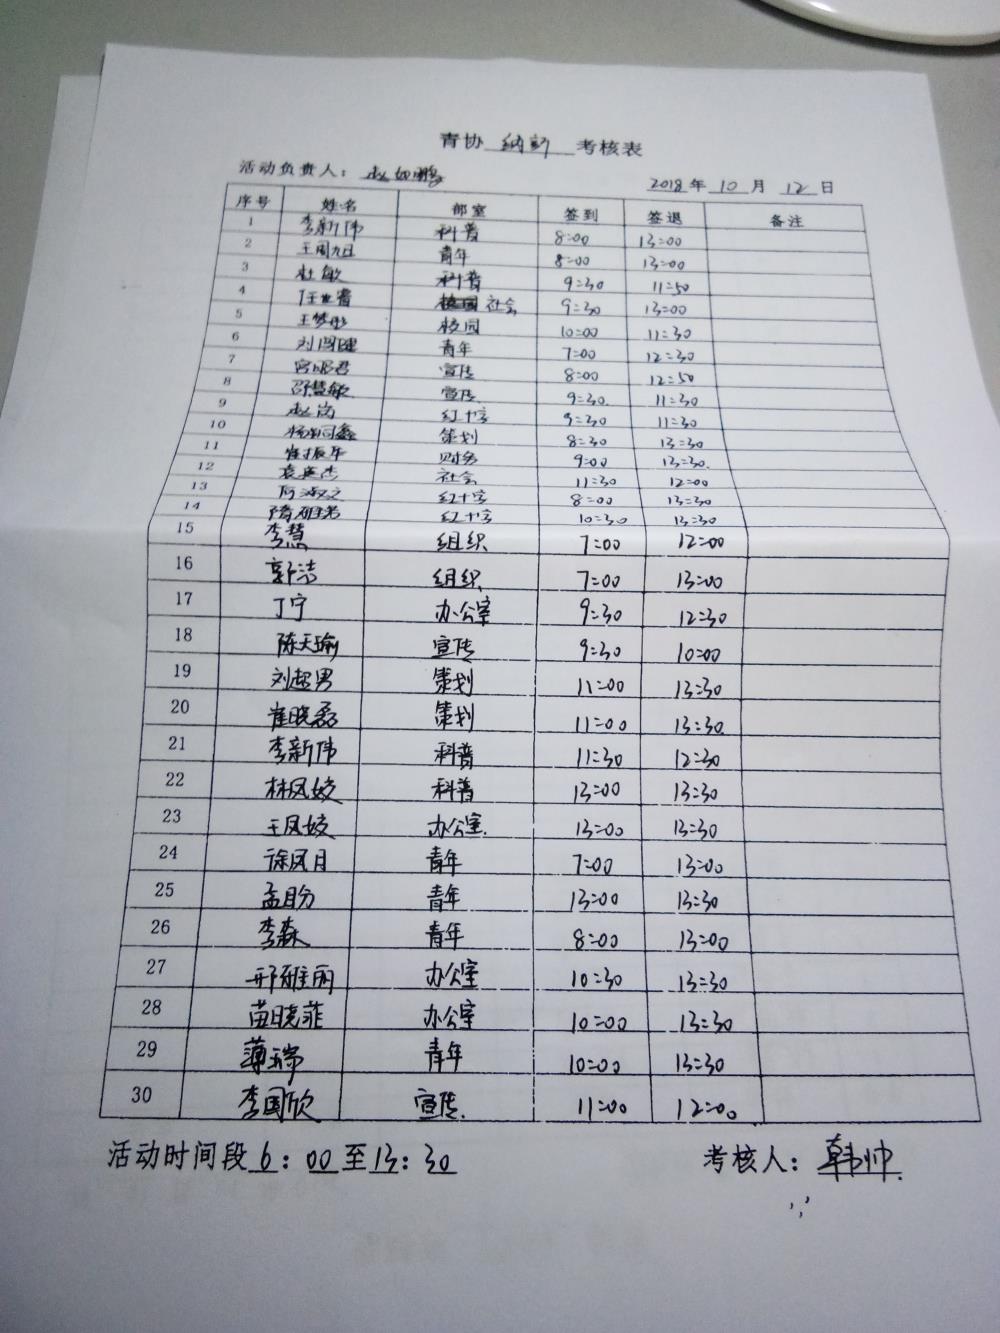 青协 纳新 考核表
活动负责人: 赵 鹏 2018年 10 月 12 日
序号 姓名 部室 签到 签退 备注
1 李新伟 科普 8:00 13:00
2 王周旭 青年 8:00 13:00
3 杜敏 科普 9:30 11:50
4 社会 9:30 13:00
5 王梦彤 校园 10:00 11:30
6 青年 7:00 12:30
7 宫昭君 宣传 8:00 12:50
8 邵慧敏 宣传 9:30 11:30
9 赵岗 红十字 9:30 11:30
10 策划 8:30 13:30
11 崔振华 财务 9:00 13:30
12 袁英杰 社会 11:30 12:00
13 红十字 8:00 13:30
14 红十字 10:30 13:30
15 李慧 组织 7:00 12:00
16 郭洁 组织 7:00 13:00
17 丁宁 办公室 9:30 12:30
18 陈天瑜 宣传 9:30 10:00
19 刘超男 策划 11:00 13:30
20 崔晓磊 策划 11:00 13:30
21 李新伟 科普 11:30 12:30
22 林凤姣 科普 13:00 13:30
23 王凤姣 办公室 13:00 13:30
24 徐凤月 青年 7:00 13:00
25 孟盼 青年 13:00 13:30
26 李森 青年 8:00 13:00
27 邢雅丽 办公室 10:30 13:30
28 苗晓菲 办公室 10:00 13:30
29 薄瑞 青年 10:00 13:30
30 李国欣 宣传 11:00 12:00
活动时间段 6:00至13:30 考核人: 韩帅